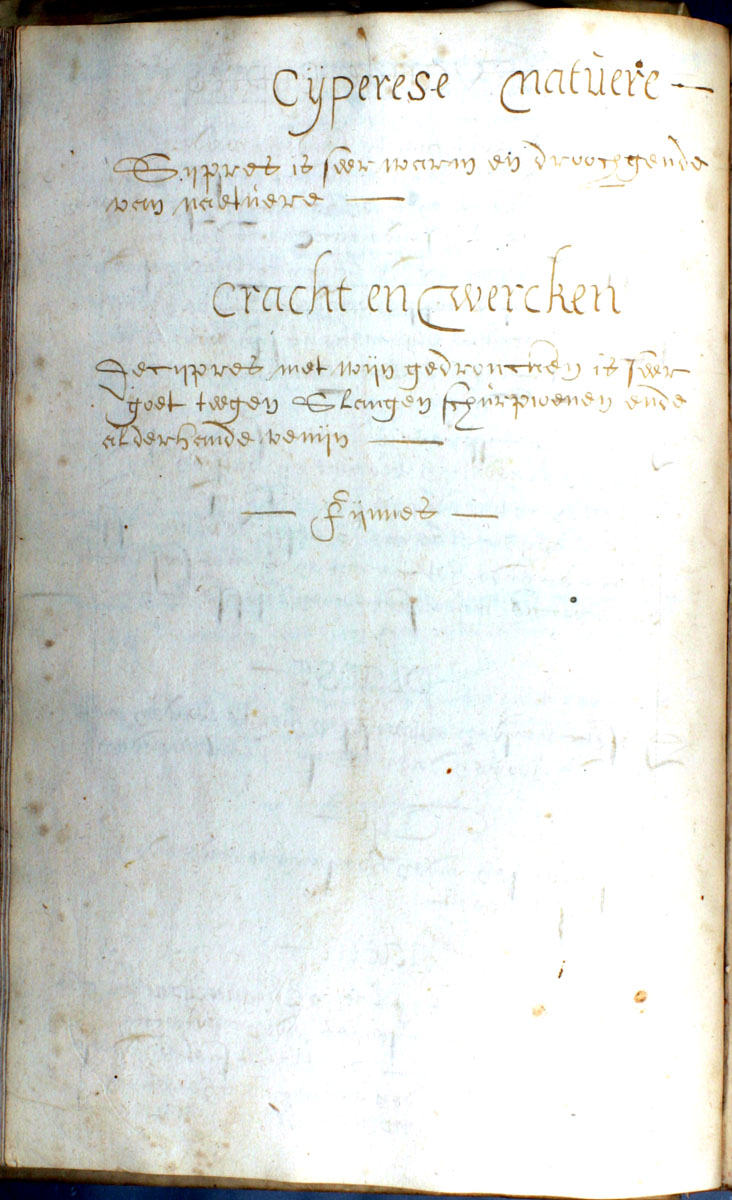 Cÿperese natùere
Sijpres is seer warm en droochgende
van naetùere
Cracht en wercken
Jecijpres met wijn gedroncken is seer
goet teegen Slangen schùrpioenen ende
alderhande venijn
Fijnnes